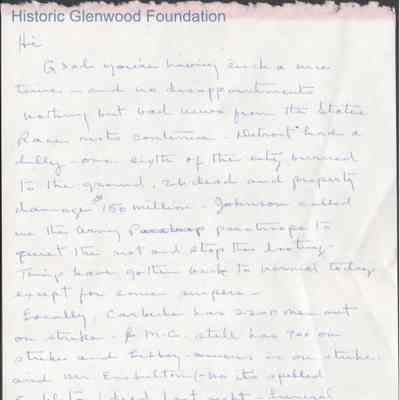 Historic Glenwood Foundation
Hi
Glad you're having such a nice
time - and no disappointments
Nothing but bad news from the States
Race riots continue. Detroit had a
dilly - one sixth of the city burned
to the ground, 26 dead and property
damage $150 million - Johnson called
in the Army paratroops to
quiet the riot and stop the looting -
Things have gotten back to normal today
except for some snipers -
Locally, Carbide has 2200 men out
on strike - F M.C. still has 700 on
strike and Libby-Owens is on strike,
and Mr. (-no its spelled
) died last night - funeral